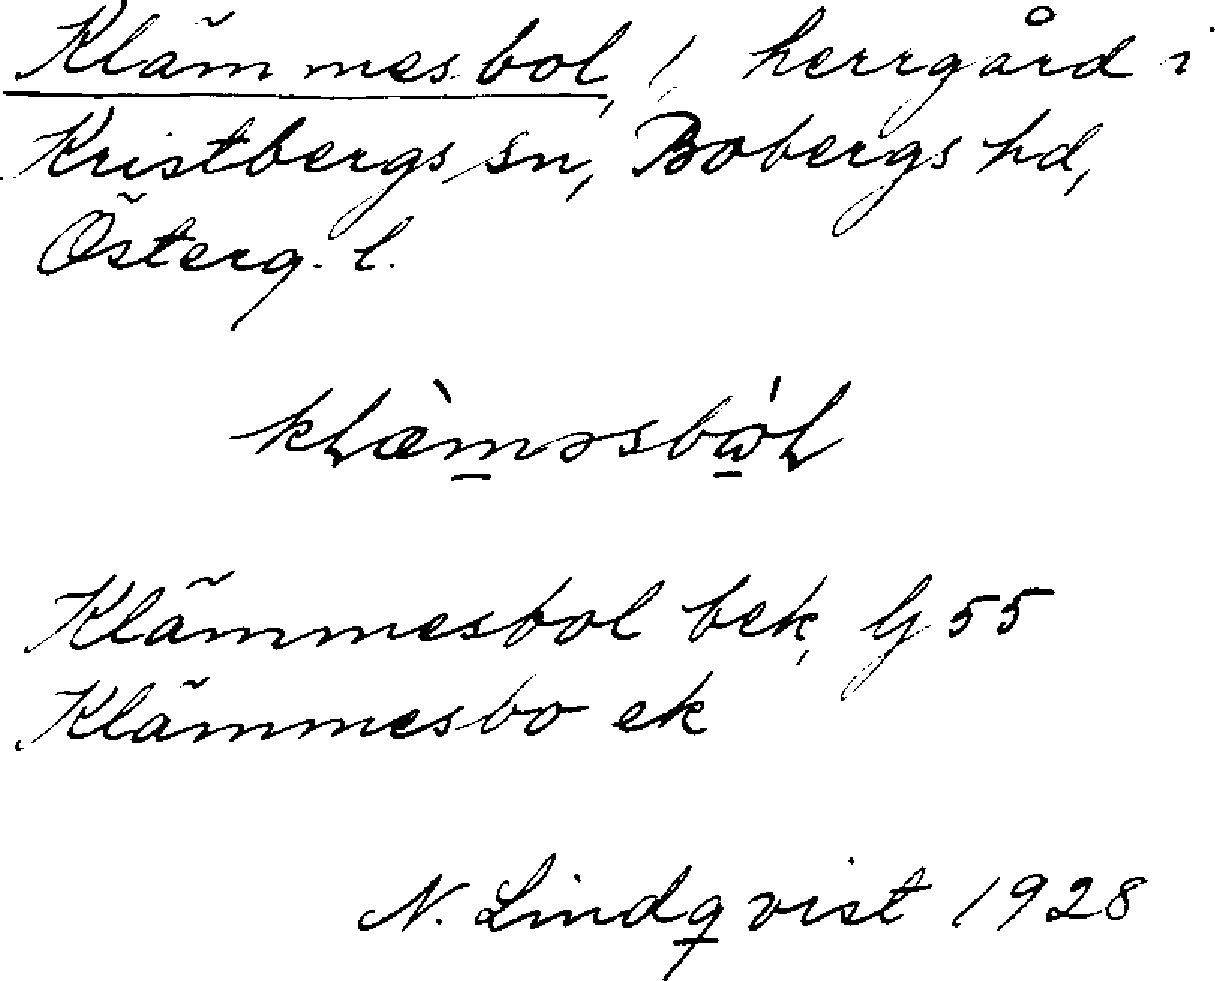 Klämmesbol, 1, herrgård i
Kristbergs sn, Bobergs hd,
Österg. l.
Klämmesbol bek, G 55
Klämmesbo ek
N. Lindqvist 1928